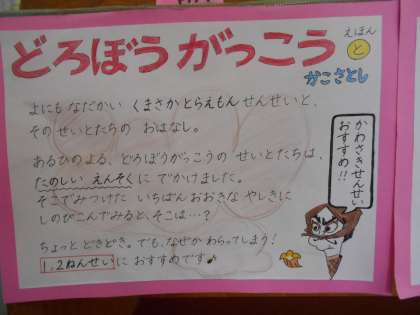 どろぼうがっこう
えほん
と
かこさとし
よにもなだかい くまさかとらえもん せんせいと、
そのせいとたちの おはなし。
あるひのよる、どろぼうがっこうの せいとたちは、
たのしい えんそくに でかけました。
そこでみつけた いちばんおおきな やしきに
しのびこんでみると、そこは…?
ちょっと どきどき。でも、なぜか わらってしまう!
1,2ねんせいに おすすめです♪
かわさきせんせい
おすすめ!!